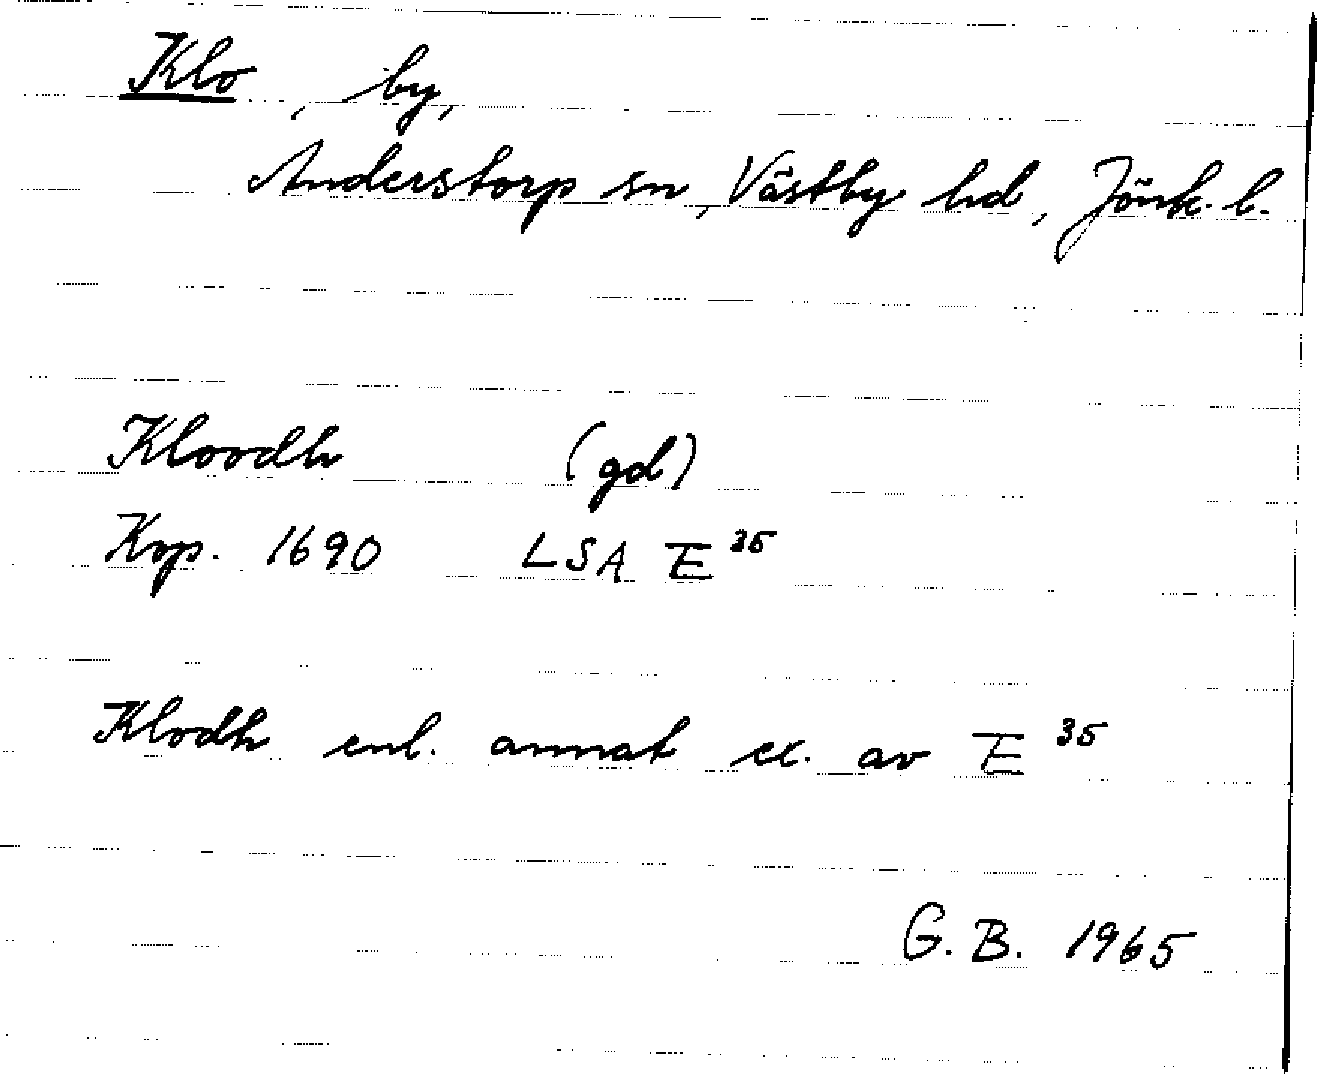 Klo, by,
Anderstorp sn, Västby hd, Jönk. l.
Kloodh (gd)
Kop. 1690 LSA E 35
Klodh enl. annat ex. av E 35
G. B. 1965